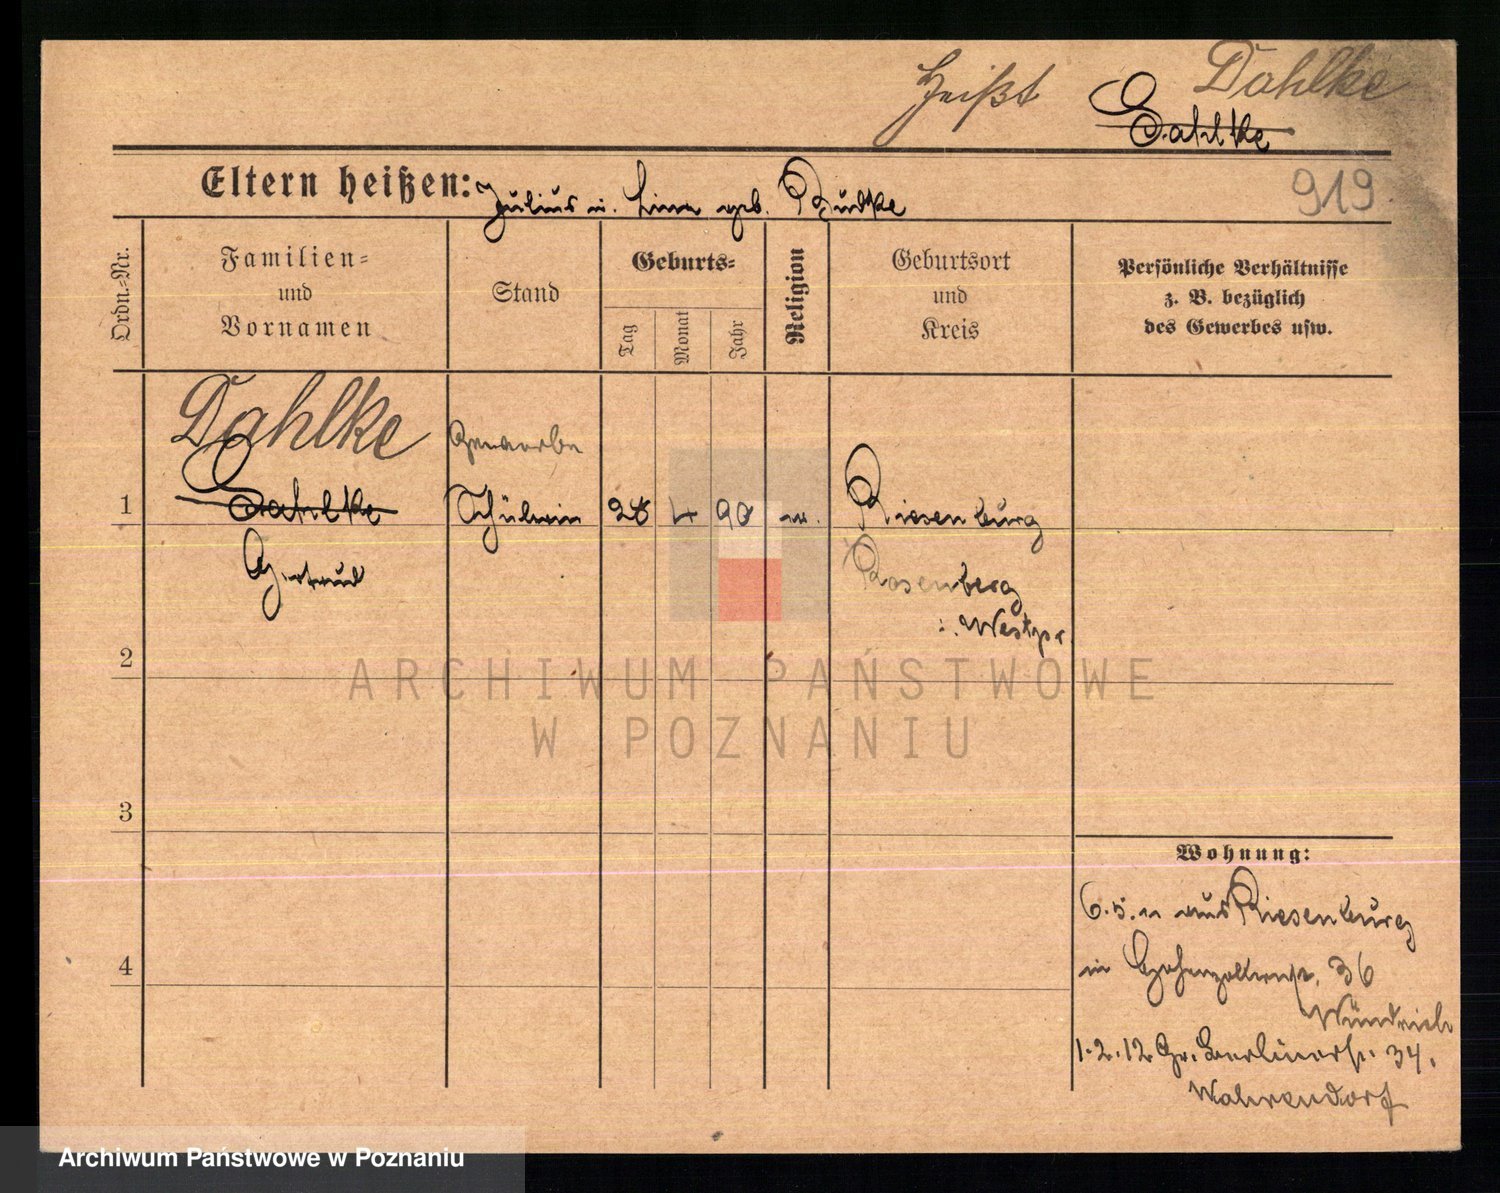 Heißt Dahlke
Sahlke
Eltern heißen: Julius u. Lina geb. Budtke
919
Ordn.-Nr.
Familien-
und
Vornamen
Stand
Geburts-
Tag
Monat
Jahr
Religion
Geburtsort
und
Kreis
Persönliche Verhältnisse
z. B. bezüglich
des Gewerbes usw.
Dahlke
Gewerbe
1 Sahlke Schülerin 28 4 90 ev. Riesenburg
Gertrud
Rosenberg
i. Westpr.
2
ARCHIWUM PAŃSTWOWE
W POZNANIU
3
Wohnung:
6.5.11 aus Riesenburg
in Hohenzollernstr. 36
Wündrich
4
1.2.12 Gr. Berlinerstr. 34.
Wahrendorf
Archiwum Państwowe w Poznaniu